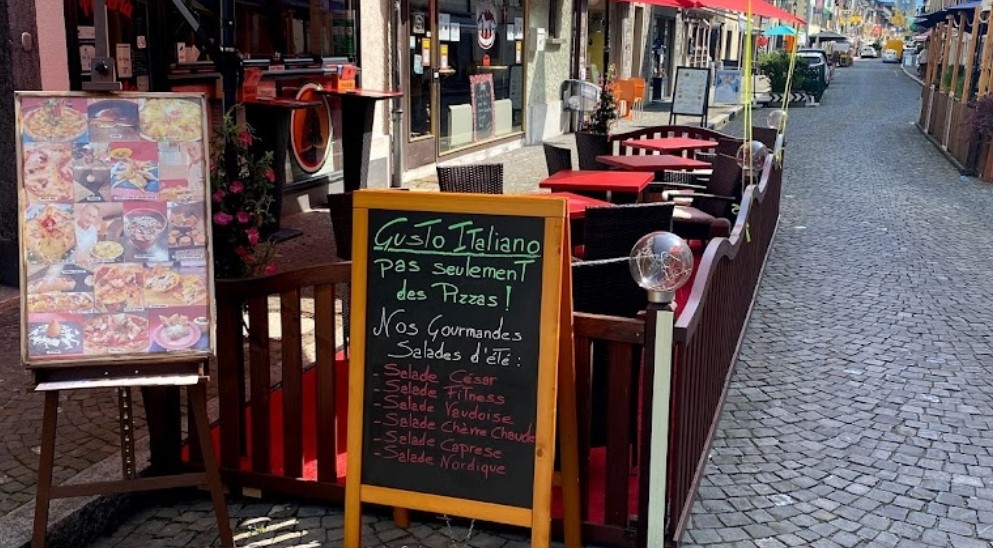 Gusto Italiano
pas seulement
des Pizzas !
Nos Gourmandes
Salades d'été :
- Salade César
- Salade Fitness
- Salade Vaudoise
- Salade Chèvre Chaude
- Salade Caprese
- Salade Nordique